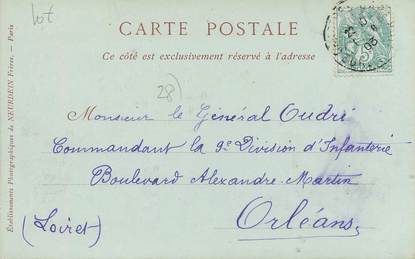 lot
CARTE POSTALE
Ce côté est exclusivement réservé à l'adresse
28)
Monsieur le Général Oudri
Commandant la 9e Division d'Infanterie
Boulevard Alexandre-Martin
Orléans
(Loiret)
Établissements Photographiques de NEURDEIN Frères. — Paris